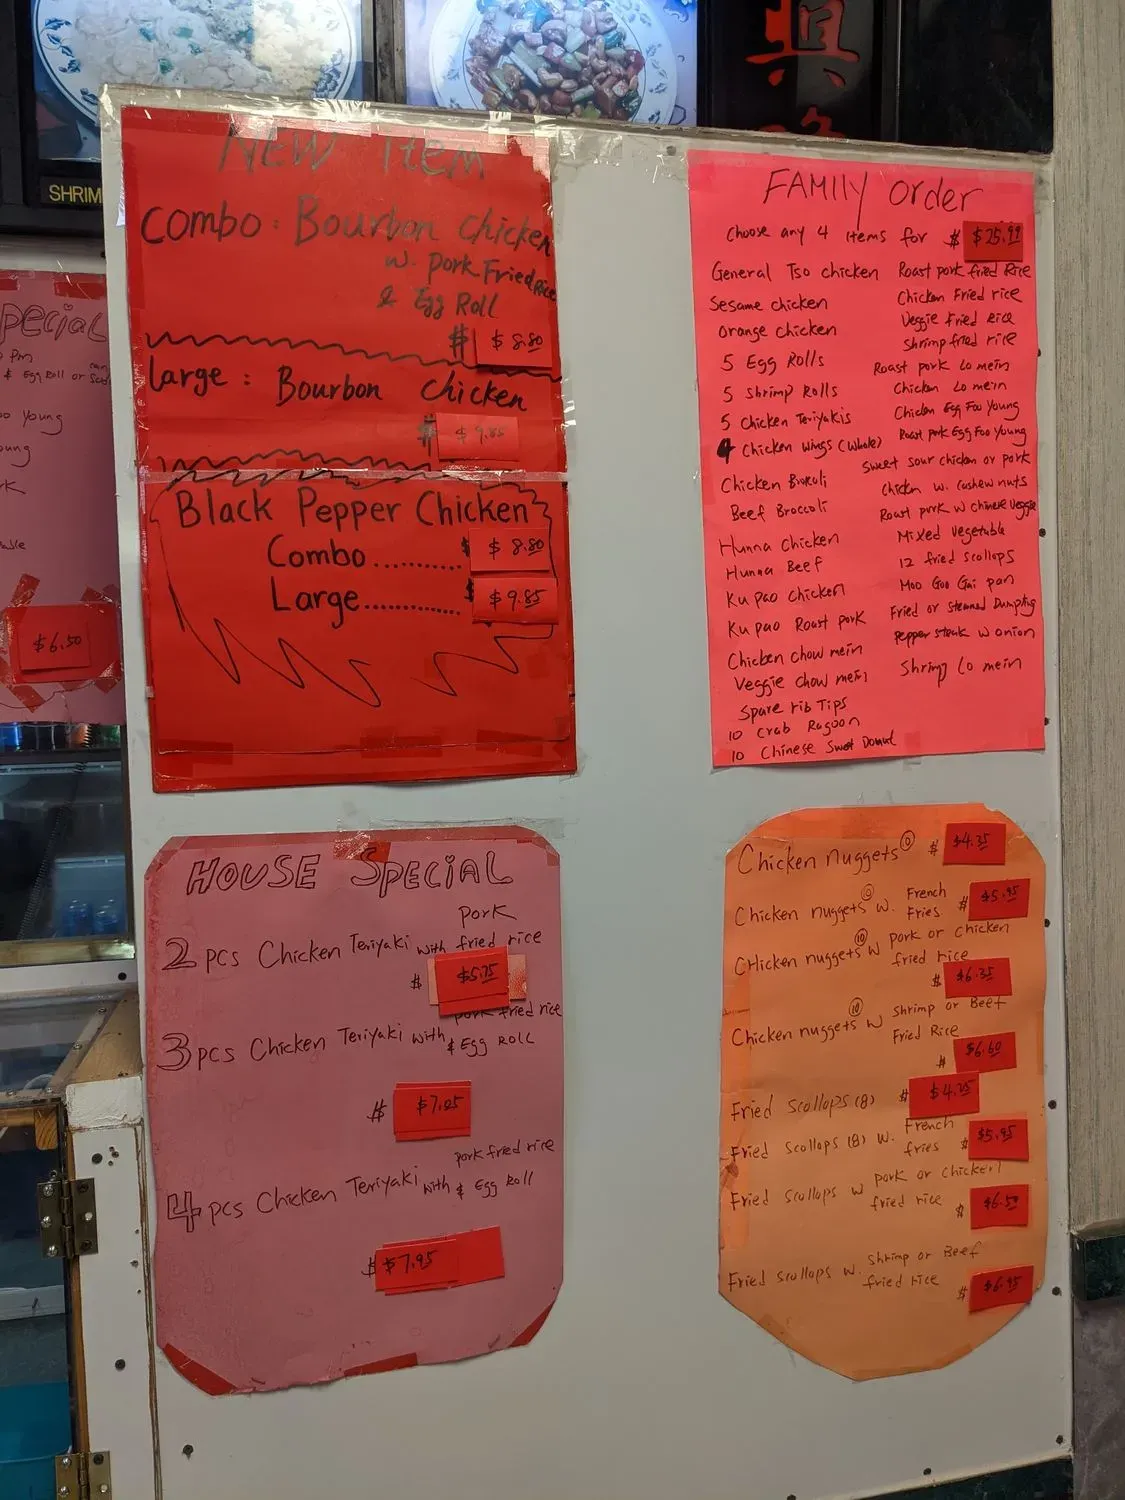 SHRIM
興
pecial
pm
& Egg Roll or Soda
oo Young
oung
rk
able
$6.50
NEW Item
Combo: Bourbon Chicken
w. Pork Fried Rice
& Egg Roll
$ $8.80
Large: Bourbon Chicken
$ $9.85
Black Pepper Chicken
Combo.......... $ $8.80
Large............ $ $9.85
FAMILY order
Choose any 4 items for $ $25.99
General Tso chicken
Sesame chicken
Orange chicken
5 Egg Rolls
5 Shrimp Rolls
5 Chicken Teriyakis
4 Chicken wings (whole)
Chicken Broccoli
Beef Broccoli
Hunna Chicken
Hunna Beef
Ku pao chicken
Ku pao Roast pork
Chicken chow mein
Veggie chow mein
Spare rib Tips
10 Crab Ragoon
10 Chinese Sweet Donut
Roast pork fried Rice
Chicken Fried rice
Veggie Fried Rice
Shrimp fried rice
Roast pork Lo mein
Chicken Lo mein
Chicken Egg Foo Young
Roast pork Egg Foo Young
Sweet sour chicken or pork
Chicken w. cashew nuts
Roast pork w chinese Veggie
Mixed Vegetable
12 fried scollops
Moo Goo Gai pan
Fried or stemmed Dumpling
Pepper steak w onion
Shrimp Lo mein
HOUSE SPECIAL
2 pcs Chicken Teriyaki with pork fried rice
$ $5.75
3 pcs Chicken Teriyaki with pork fried rice
& Egg Roll
$ $7.05
4 pcs Chicken Teriyaki with pork fried rice
& Egg Roll
$ $7.95
Chicken nuggets $ $4.35
Chicken nuggets w. French Fries $ $5.95
Chicken nuggets (10) w pork or chicken
fried rice
$ $6.35
Chicken nuggets (10) w shrimp or Beef
Fried Rice
$ $6.60
Fried scollops (8) $ $4.25
Fried scollops (8) w. French fries $ $5.95
Fried scollops w pork or chicken
fried rice $ $6.50
Fried scollops w. shrimp or Beef
fried rice $ $6.95